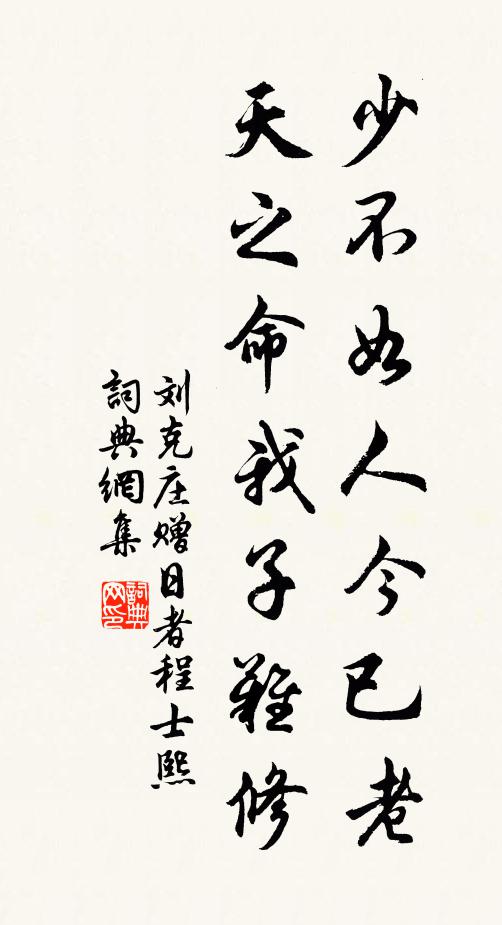 少不如人今已老
天之命我子難修
刘克庄赠日者程士熙
詞典網集
詞典网印